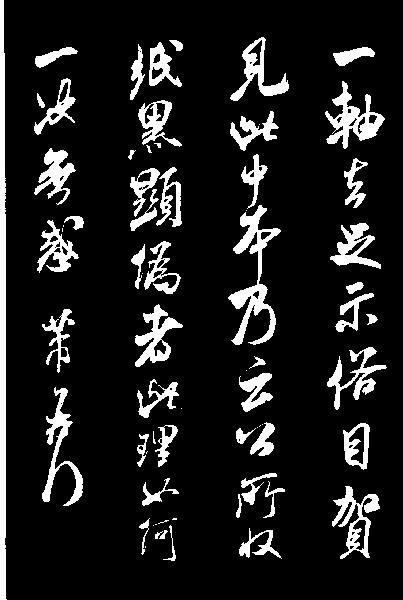 一軸去足示俗目賀
見此中本乃云公所收
紙黑顯偽者此理如何
一決無惑 芾頓首